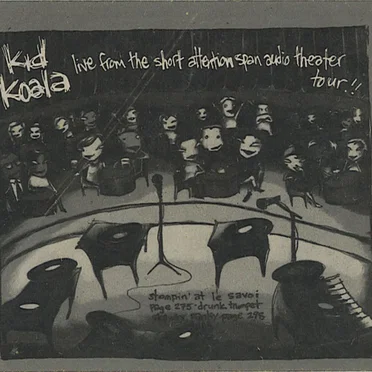 kid
koala
live from the short attention span audio theater
tour!!
stompin' at le savoi
page 275 · drunk trumpet
page 298